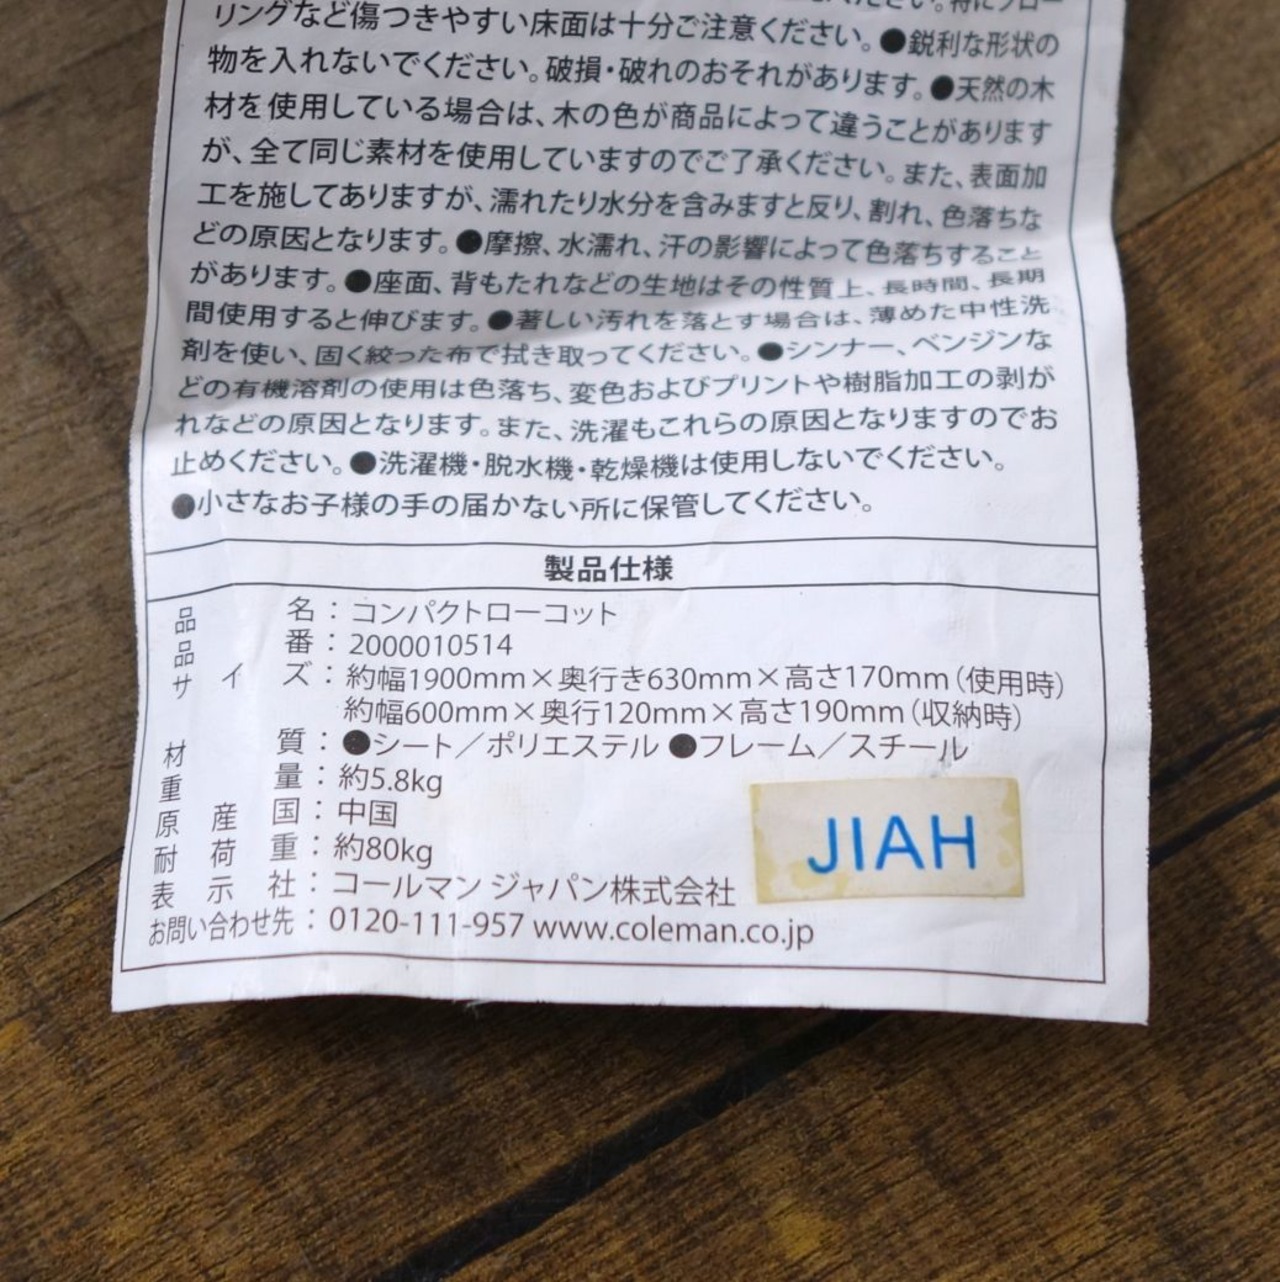 ください。特にフロー
リングなど傷つきやすい床面は十分ご注意ください。●鋭利な形状の
物を入れないでください。破損・破れのおそれがあります。●天然の木
材を使用している場合は、木の色が商品によって違うことがあります
が、全て同じ素材を使用していますのでご了承ください。また、表面加
工を施してありますが、濡れたり水分を含みますと反り、割れ、色落ちな
どの原因となります。●摩擦、水濡れ、汗の影響によって色落ちすること
があります。●座面、背もたれなどの生地はその性質上、長時間、長期
間使用すると伸びます。●著しい汚れを落とす場合は、薄めた中性洗
剤を使い、固く絞った布で拭き取ってください。●シンナー、ベンジンな
どの有機溶剤の使用は色落ち、変色およびプリントや樹脂加工の剥が
れなどの原因となります。また、洗濯もこれらの原因となりますのでお
止めください。●洗濯機・脱水機・乾燥機は使用しないでください。
●小さなお子様の手の届かない所に保管してください。
製品仕様
品名：コンパクトローコット
品番：2000010514
サイズ：約幅1900mm×奥行き630mm×高さ170mm（使用時）
約幅600mm×奥行120mm×高さ190mm（収納時）
材質：●シート／ポリエステル ●フレーム／スチール
重量：約5.8kg
原産国：中国
耐荷重：約80kg
JIAH
表示社：コールマン ジャパン株式会社
お問い合わせ先：0120-111-957 www.coleman.co.jp